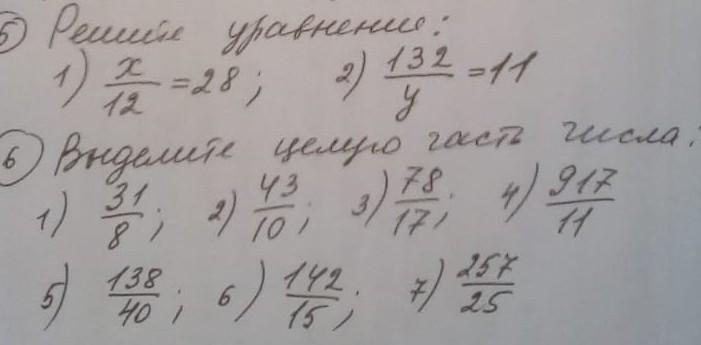 5) Решите уравнение:
1) x/12 = 28; 2) 132/y = 11
6) Выделите целую часть числа:
1) 31/8; 2) 43/10; 3) 78/17; 4) 917/11
5) 138/40; 6) 142/15; 7) 257/25